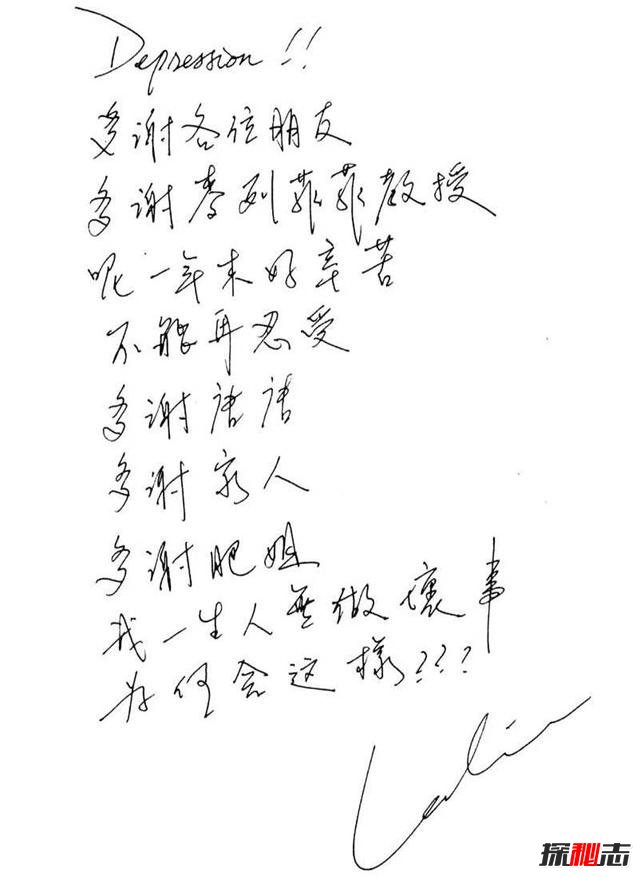 Depression!!
多谢各位朋友
多谢李列菲菲教授
呢一年来好辛苦
不能再忍受
多谢唐唐
多谢家人
多谢肥姐
我一生人無做壞事
为何会这樣???
Leslie
探秘志